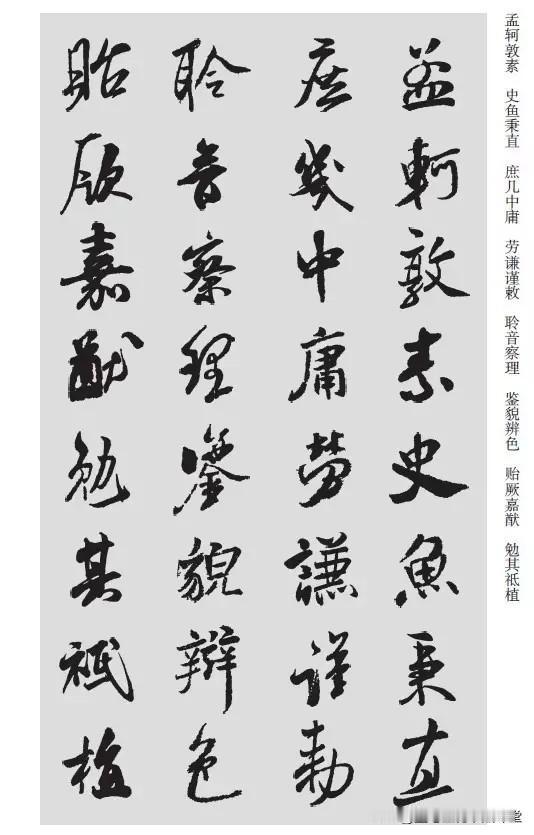 孟轲敦素 史鱼秉直 庶几中庸 劳谦谨敕 聆音察理 鉴貌辨色 贻厥嘉猷 勉其祗植
孟軻敦素史魚秉直
庶幾中庸勞謙謹勅
聆音察理鑒貌辯色
貽厥嘉猷勉其祗植
堂